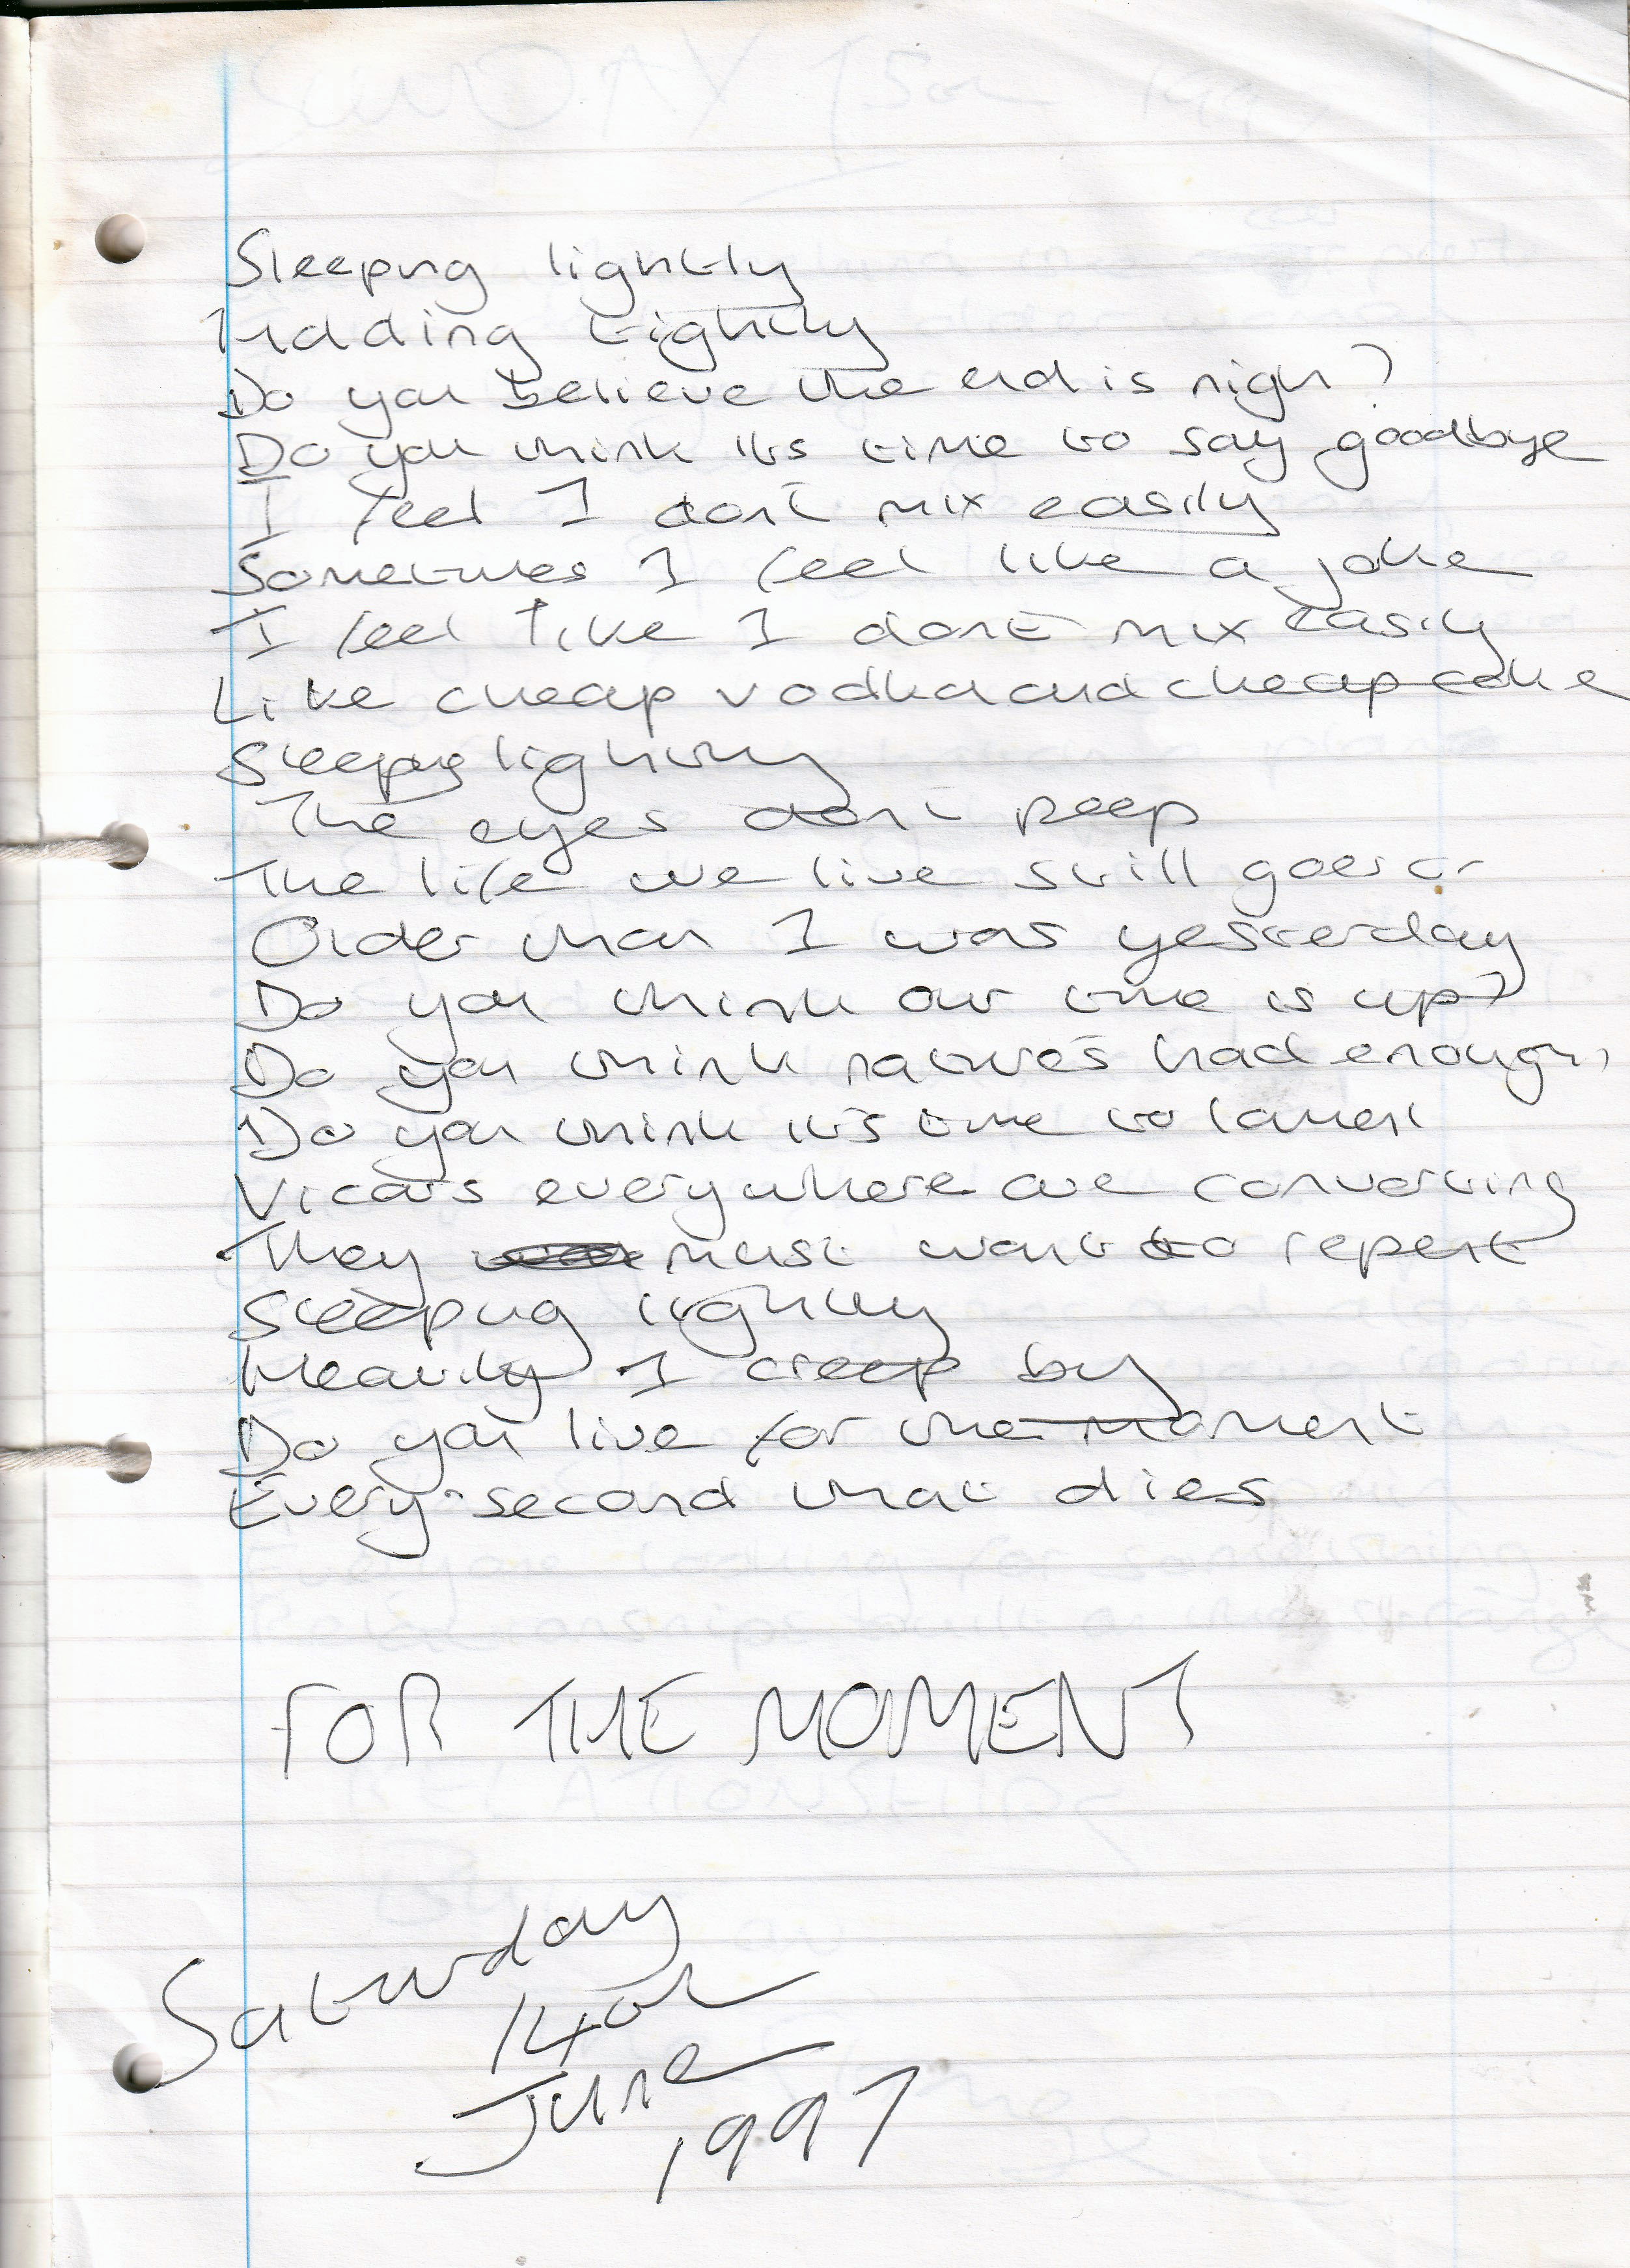 Sleeping lightly
Holding tightly
Do you believe the end is nigh?
Do you think its time to say goodbye
I feel I don't mix easily
Sometimes I feel like a joke
I feel like I dont mix easily
Like cheap vodka and cheap coke
Sleeping lightly
The eyes don't peep
The life we live still goes on
Older than I was yesterday
Do you think our time is up?
Do you think nature's had enough,
Do you think it's time to lament
Vicars everywhere are converting
They must want to repent
Sleeping lightly
Heavily I creep by
Do you live for the moment
Every second that dies
FOR THE MOMENT
Saturday
14th
June
1997